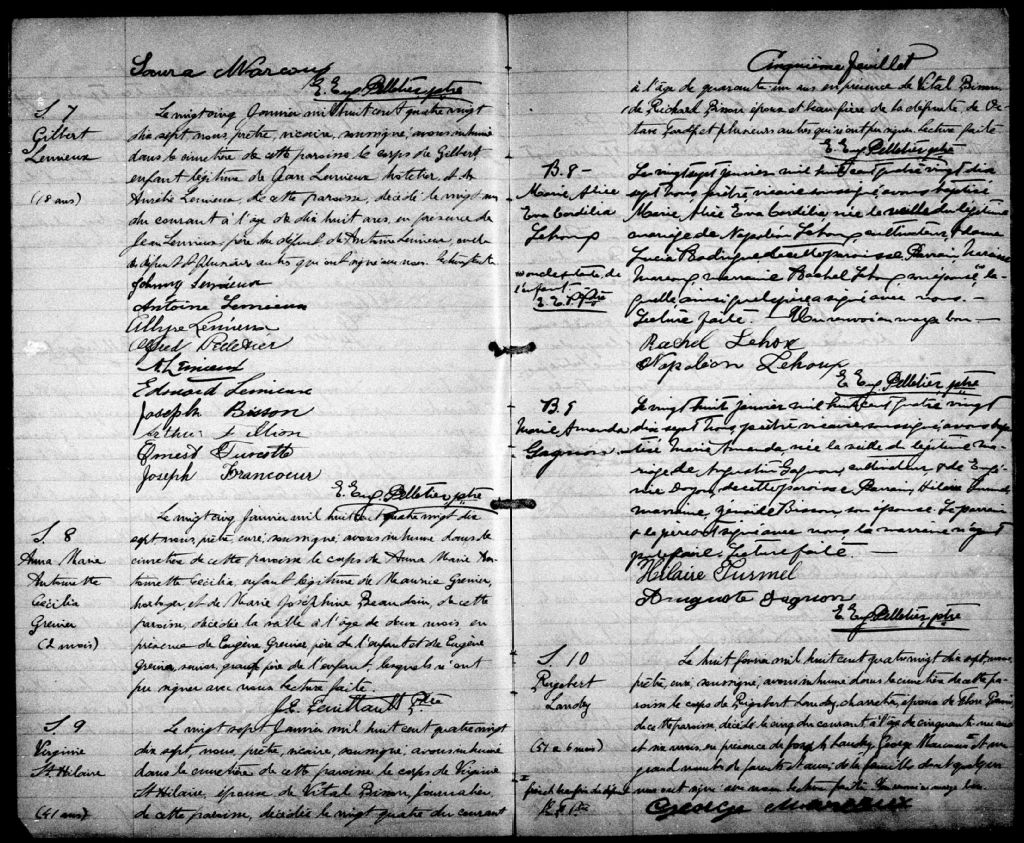 Laura Marcoux
E. Eug. Pelletier, ptre
S. 7
Gilbert
Lemieux
(18 ans)
Le vingt cinq Janvier mil huit cent quatre vingt
dix sept nous, prêtre, vicaire, soussigné, avons inhumé
dans le cimetière de cette paroisse le corps de Gilbert
enfant légitime de Jean Lemieux hôtelier, et de
Aurélie Lemieux, de cette paroisse, décédé le vingt
du courant à l'âge de dix huit ans, en présence de
Jean Lemieux, père du défunt de Antoine Lemieux, oncle
du défunt et plusieurs autres qui ont signé avec nous.
Johnny Lemieux
Antoine Lemieux
Lemieux
Pelletier
Lemieux
Edouard Lemieux
Joseph Bisson
Arthur Fillion
Ernest Turcotte
Joseph Francoeur
E. Eug. Pelletier, ptre
S. 8
Anna Marie
Antoinette
Cécilia
Grenier
(2 mois)
Le vingt cinq Janvier mil huit cent quatre vingt dix
sept nous, prêtre, curé, soussigné, avons inhumé dans le
cimetière de cette paroisse le corps de Anna Marie An-
toinette Cécilia, enfant légitime de Maurice Grenier,
horloger, et de Marie Joséphine Beaudoin, de cette
paroisse, décédée la veille à l'âge de deux mois en
présence de Eugène Grenier, père de l'enfant et de Eugène
Grenier, grand père de l'enfant, lesquels n'ont
pu signer avec nous. Lecture faite.
Ptre
S. 9
Virginie
St. Hilaire
(41 ans)
Le vingt sept Janvier mil huit cent quatre vingt
dix sept nous, prêtre, vicaire, soussigné, avons inhumé
dans le cimetière de cette paroisse le corps de Virginie
St Hilaire, épouse de Vital Bisson, journalier
de cette paroisse, décédée le vingt quatre du courant
Cinquième feuillet
à l'âge de quarante un ans en présence de Vital Bisson,
de Richard Bisson époux et beau frère de la défunte, de Oc-
tave et plusieurs autres qui n'ont pu signer. Lecture faite
E. Eug. Pelletier, ptre
B. 8 –
Marie Alice
Eva Cordélia
Lehoux
de
l'enfant.
E. E. P. ptre
Le vingt sept janvier mil huit cent quatre vingt dix
sept nous, prêtre, vicaire soussigné, avons baptisé
Marie Alice Eva Cordélia, née la veille du légitime
mariage de Napoléon Lehoux, cultivateur, et de
Lucia Rodrigue de cette paroisse. Parrain,
Marcoux, marraine Rachel Lehoux la-
quelle ainsi que le père a signé avec nous. –
Lecture faite. – Un renvoi en marge bon –
Rachel Lehoux
Napoléon Lehoux
E. Eug. Pelletier, ptre
B. 9
Marie Amanda
Gagnon
Le vingt huit janvier mil huit cent quatre vingt
dix sept nous prêtre vicaire soussigné avons bap-
tisé Marie Amanda, née la veille du légitime ma-
riage de Augustin Gagnon, cultivateur & de Eugé-
nie Doyon, de cette paroisse. Parrain, Hilaire Turmel
marraine, Zénaïde Bisson, son épouse. Le parrain
& le père ont signé avec nous, la marraine n'ayant
pu le faire. Lecture faite. –
Hilaire Turmel
Auguste Gagnon
E. Eug. Pelletier, ptre
S. 10
Rigobert
Landry
(51 a 6 mois)
Le huit février mil huit cent quatre vingt dix sept nous,
prêtre, curé, soussigné, avons inhumé dans le cimetière de cette pa-
roisse le corps de Rigobert Landry, charretier, époux de Flore
de cette paroisse, décédé le cinq du courant à l'âge de cinquante un ans
et six mois, en présence de Joseph Landry, George Marcoux et un
grand nombre de parents et amis de la famille dont quelques
uns ont signé avec nous. Lecture faite. Un renvoi en marge bon.
George Marcoux